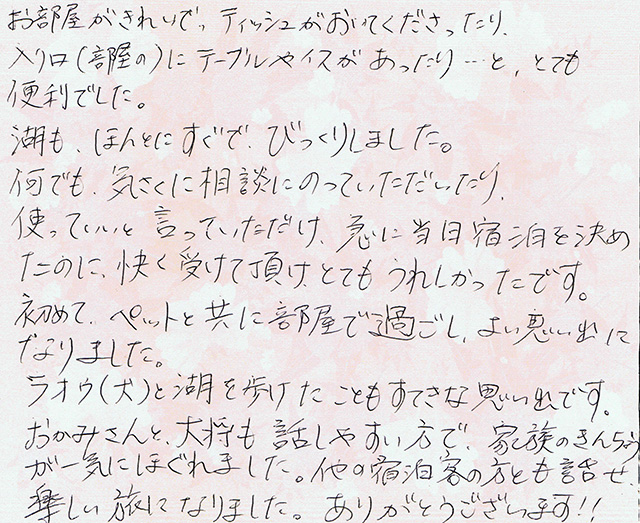 お部屋がきれいで、ティッシュがおいてくださったり、
入り口(部屋の)にテーブルやイスがあったり…と、とても
便利でした。
湖も、ほんとにすぐで、びっくりしました。
何でも、気さくに相談にのっていただいたり、
使っていいと言っていただけ、急に当日宿泊を決め
たのに、快く受けて頂け、とてもうれしかったです。
初めて、ペットと共に部屋で過ごし、よい思い出に
なりました。
ラオウ(犬)と湖を歩けたこともすてきな思い出です。
おかみさんと、大将も話しやすい方で、家族のきんちょう
が一気にほぐれました。他の宿泊客の方とも話せ、
楽しい旅になりました。ありがとうございます!!